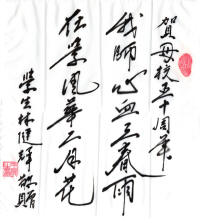 賀母校五十周年
我師心血三春雨
在學風華二月花
榮生林健群敬贈